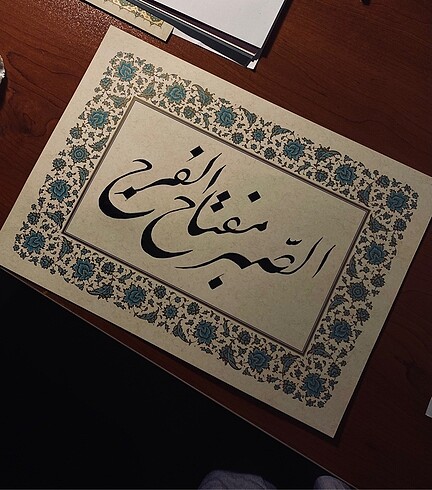 الصّبر مفتاح الفرج